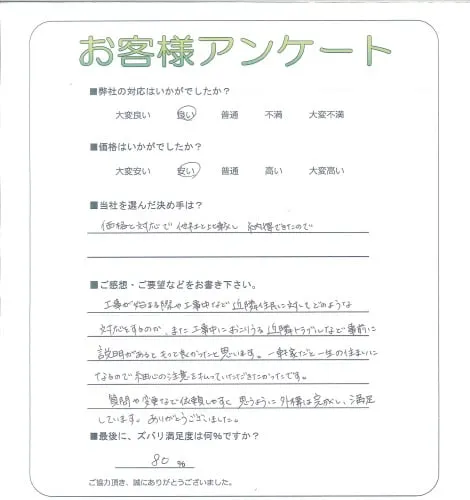 お客様アンケート
■弊社の対応はいかがでしたか？
大変良い 良い 普通 不満 大変不満
■価格はいかがでしたか？
大変安い 安い 普通 高い 大変高い
■当社を選んだ決め手は？
価格と対応で 他社と比較し 納得できたので
■ご感想・ご要望などをお書き下さい。
工事が始まる際や工事中など近隣住民に対してどのような
対応をするのか、また工事中におこりうる近隣トラブルなど事前に
説明があるともっと良かったと思います。一軒家だと一生の住まいに
なるので細心の注意を払っていただきたかったです。
質問や変更など依頼しやすく 思うように外構は完成し、満足
しています。ありがとうございました。
■最後に、ズバリ満足度は何％ですか？
80 ％
ご協力頂き、誠にありがとうございました。